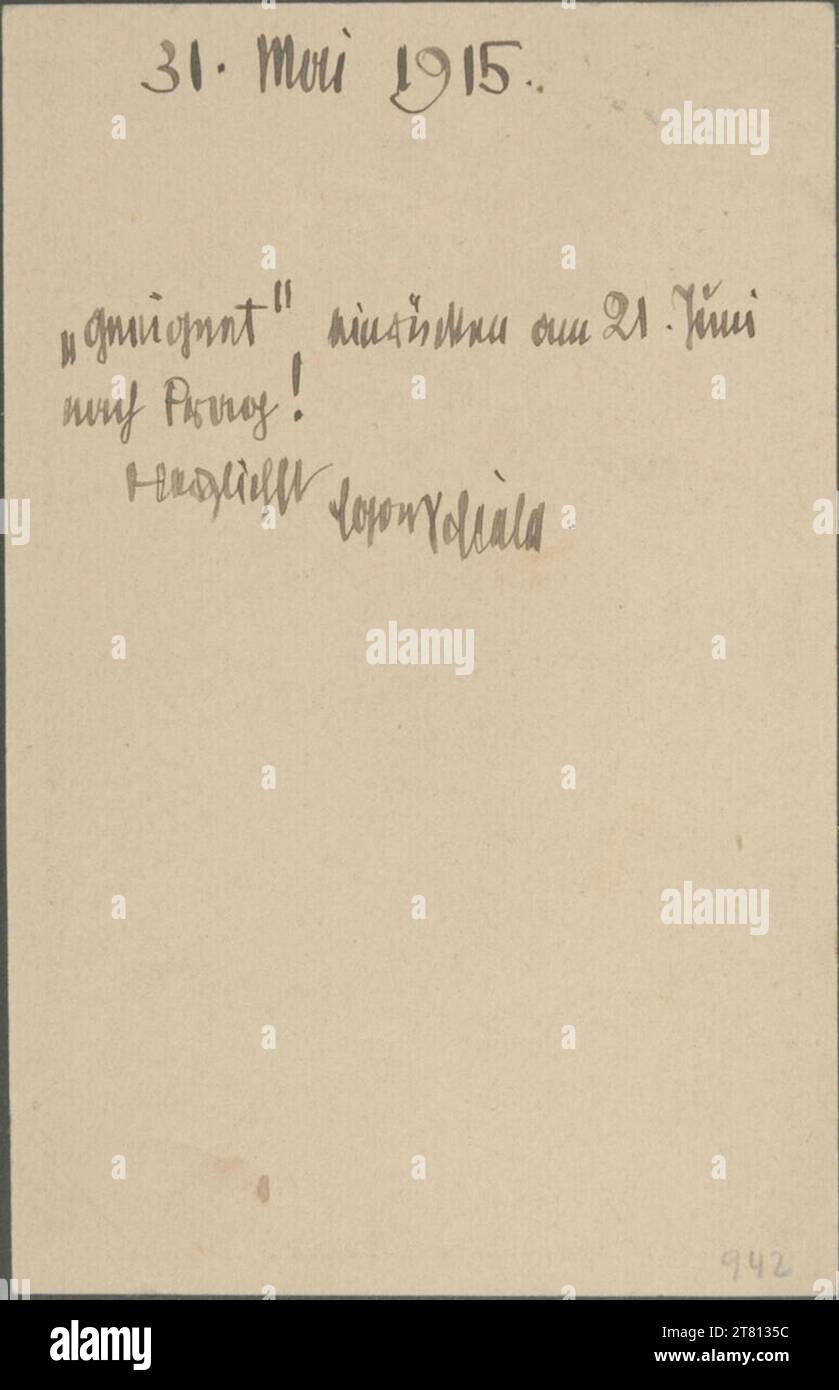 31. Mai 1915.
„geeignet" einrücken am 21. Juni
nach Prag!
Herzlichst Egon Schiele
942
alamy
Image ID: 2T8135C
www.alamy.com